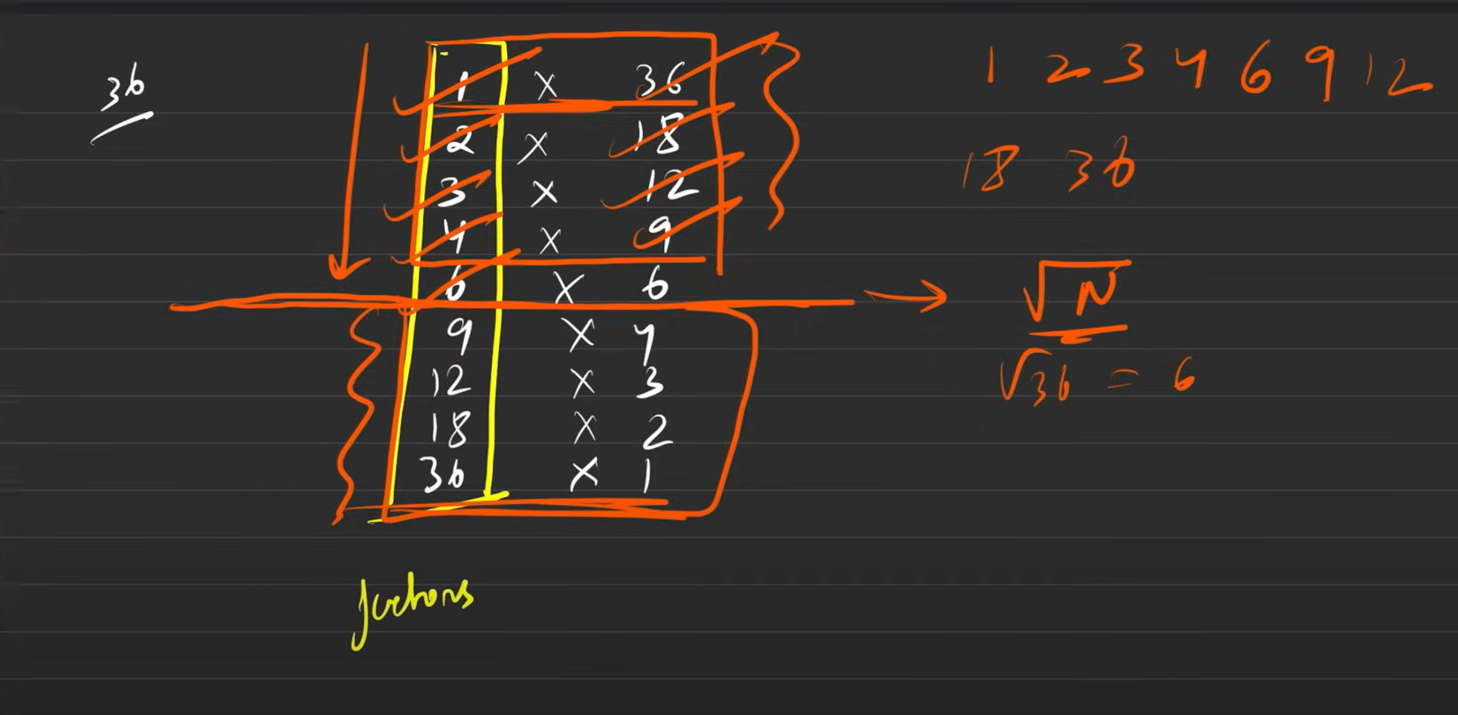 36
1 × 36
2 × 18
3 × 12
4 × 9
6 × 6
9 × 4
12 × 3
18 × 2
36 × 1
factors
1 2 3 4 6 9 12
18 36
√N
√36 = 6